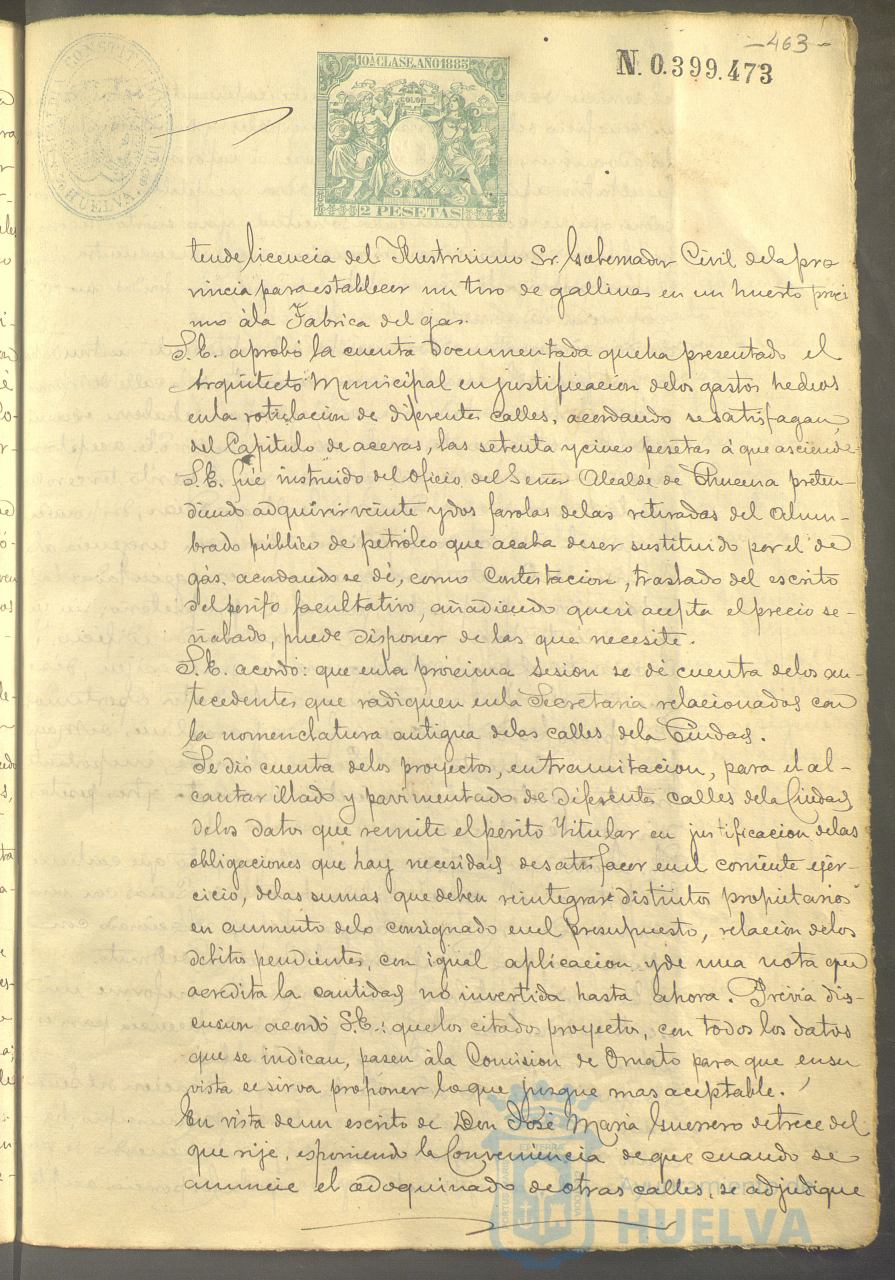 -463-
10ª CLASE. AÑO 1885
COLON
2 PESETAS
N. 0.399.473
HUELVA
tende licencia del Ilustrisimo Sr. Gobernador Civil de la pro
vincia para establecer un tiro de gallinas en un huerto próci
mo á la Fabrica del gas.
S.E. aprobó la cuenta documentada que ha presentado el
Arquitecto Municipal en justificacion de los gastos hechos
en la rotulacion de diferentes calles, acordando se satisfagan,
del Capitulo de aceras, las setenta y cinco pesetas á que asciende.
S.E. fué instruido del oficio del Señor Alcalde de Chucena preten-
diendo adquirir veinte y dos farolas de las retiradas del alum-
brado público de petróleo que acaba de ser sustituido por el de
gas, acordando se dé, como Contestacion, traslado del escrito
del perito facultativo, añadiendo que si acepta el precio se-
ñalado, puede disponer de las que necesite.
S.E. acordó: que en la prócima sesion se dé cuenta de los an-
tecedentes que radiquen en la Secretaria relacionados con
la nomenclatura antigua de las calles de la Ciudad.
Se dió cuenta de los proyectos, en tramitacion, para el al-
cantarillado y pavimentado de diferentes calles de la Ciudad,
de los datos que remite el perito titular en justificacion de las
obligaciones que hay necesidad de satisfacer en el corriente ejér-
cicio, de las sumas que deben reintegrar distintos propietarios
en aumento de lo consignado en el presupuesto, relacion de los
debitos pendientes, con igual aplicacion y de una nota que
acredita la cantidad no invertida hasta ahora. Prévia dis-
cusion acordó S.E.: que los citados proyectos, con todos los datos
que se indican, pasen á la Comision de Ornato para que en su
vista se sirva proponer lo que juzgue mas aceptable.
En vista de un escrito de Don José Maria Guerrero de trece del
que rije, esponiendo la Conveniencia de que cuando se
anuncie el adoquinado de otras calles, se adjudique
Ayuntamiento de
HUELVA